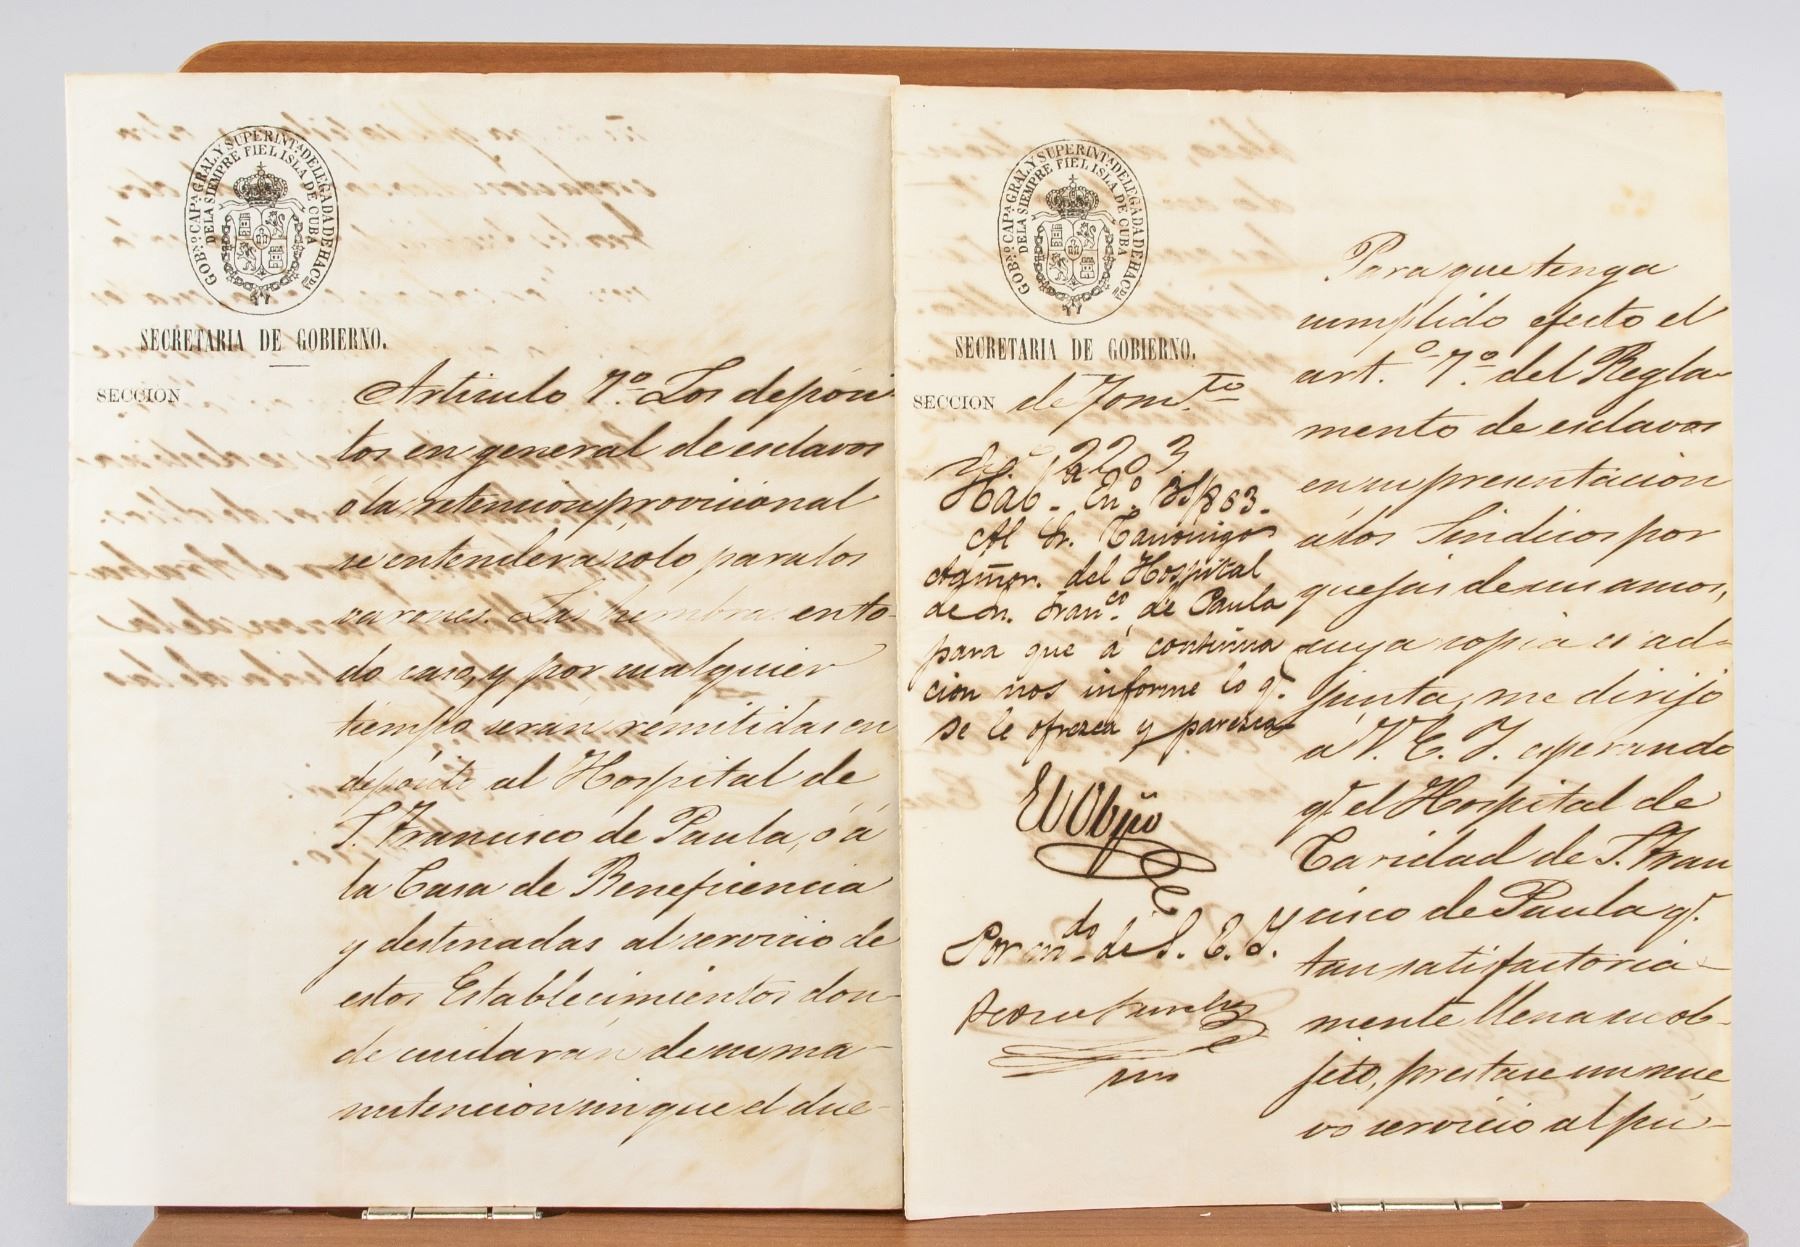 GOBNO. CAPA. GRAL. Y SUPERINTA. DELEGADA DE HACDA.
DE LA SIEMPRE FIEL ISLA DE CUBA
SECRETARIA DE GOBIERNO.
SECCION
Articulo 7º. Los deposi-
tos en general de esclavos
ó la retencion provisional
se entenderá solo para los
varones. Las hembras en to-
do caso, y por cualquier
tiempo serán remitidas en
depósito al Hospital de
S. Francisco de Paula, ó á
la Casa de Beneficencia
y destinadas al servicio de
estos Establecimientos don-
de cuidarán de su ma-
nutencion sin que el due-
GOBNO. CAPA. GRAL. Y SUPERINTA. DELEGADA DE HACDA.
DE LA SIEMPRE FIEL ISLA DE CUBA
SECRETARIA DE GOBIERNO.
SECCION de Fomto.
2203
Hab. Eno. 31/863.
Al Sr. Canónigo
Admor. del Hospital
de Sn. Franco. de Paula
para que á continua
cion nos informe lo q.
se le ofrezca y parezca
El Obpo
Por mdo. de S. E. Y.
Para que tenga
cumplido efecto el
arto. 7º. del Regla-
mento de esclavos
en su presentacion
á los Sindicos por
quejas de sus amos,
cuya copia es ad-
junta, me dirijo
á V. E. I. esperando
q. el Hospital de
Caridad de S. Fran
cisco de Paula q.
tan satisfactoria-
mente llena su ob-
jeto, prestase un nue
vo servicio al pú-